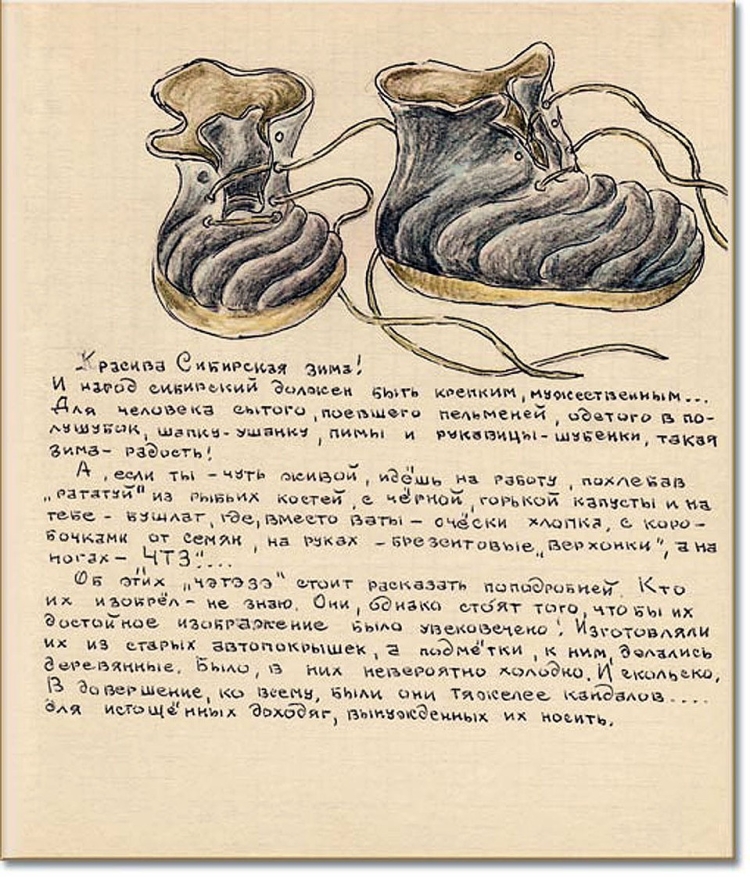 Красива Сибирская зима!
И народ сибирский должен быть крепким, мужественным...
Для человека сытого, поевшего пельменей, одетого в по-
лушубок, шапку-ушанку, пимы и рукавицы-шубенки, такая
зима- радость!
А, если ты - чуть живой, идёшь на работу, похлебав
„рататуй" из рыбьих костей, с чёрной, горькой капусты и на
тебе - бушлат, где, вместо ваты - очёски хлопка, с коро-
бочками от семян, на руках - брезентовые „верхонки", а на
ногах - ЧТЗ!...
Об этих „чэтэзэ" стоит рассказать поподробней. Кто
их изобрёл - не знаю. Они, однако стоят того, чтобы их
достойное изображение было увековечено! Изготовляли
их из старых автопокрышек, а подмётки, к ним, делались
деревянные. Было, в них невероятно холодно. И скользко.
В довершение, ко всему, были они тяжелее кандалов....
для истощённых доходяг, вынужденных их носить.